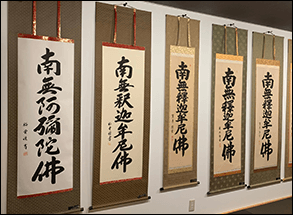 南無阿彌陀佛
南無釈迦牟尼佛
南無釋迦牟尼佛
南無釋迦牟尼佛
南無釋迦牟尼佛